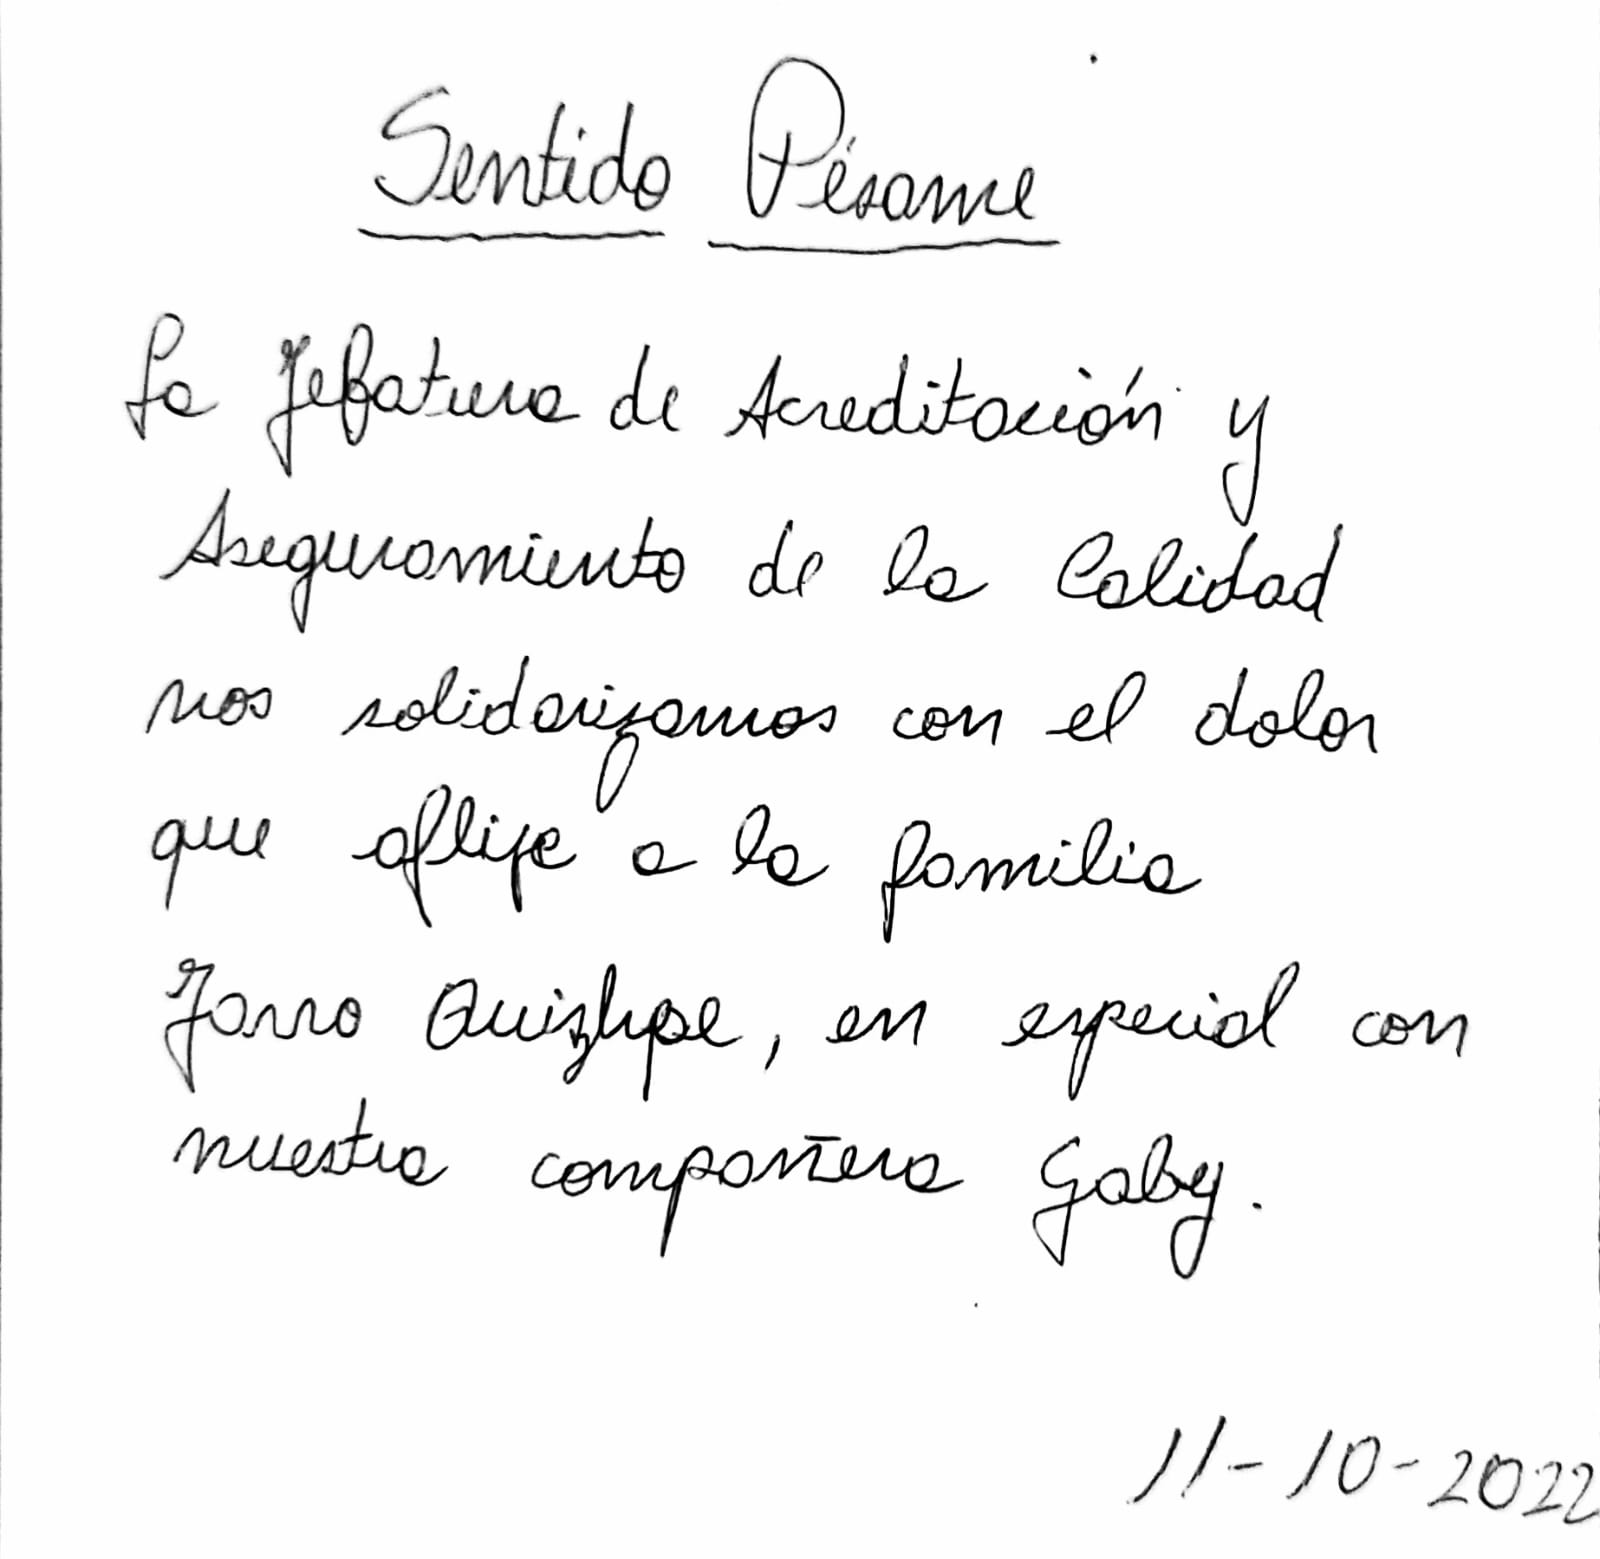 Sentido Pésame
La Jefatura de Acreditación y
Aseguramiento de la Calidad
nos solidarizamos con el dolor
que aflije a la familia
Jarro Quizhpe, en especial con
nuestra compañera Gaby.
11-10-2022